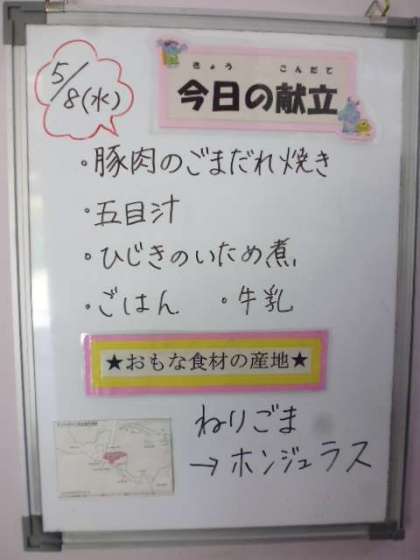 5/8(水)
きょう こんだて
今日の献立
・豚肉のごまだれ焼き
・五目汁
・ひじきのいため煮
・ごはん ・牛乳
★おもな食材の産地★
ねりごま
→ホンジュラス